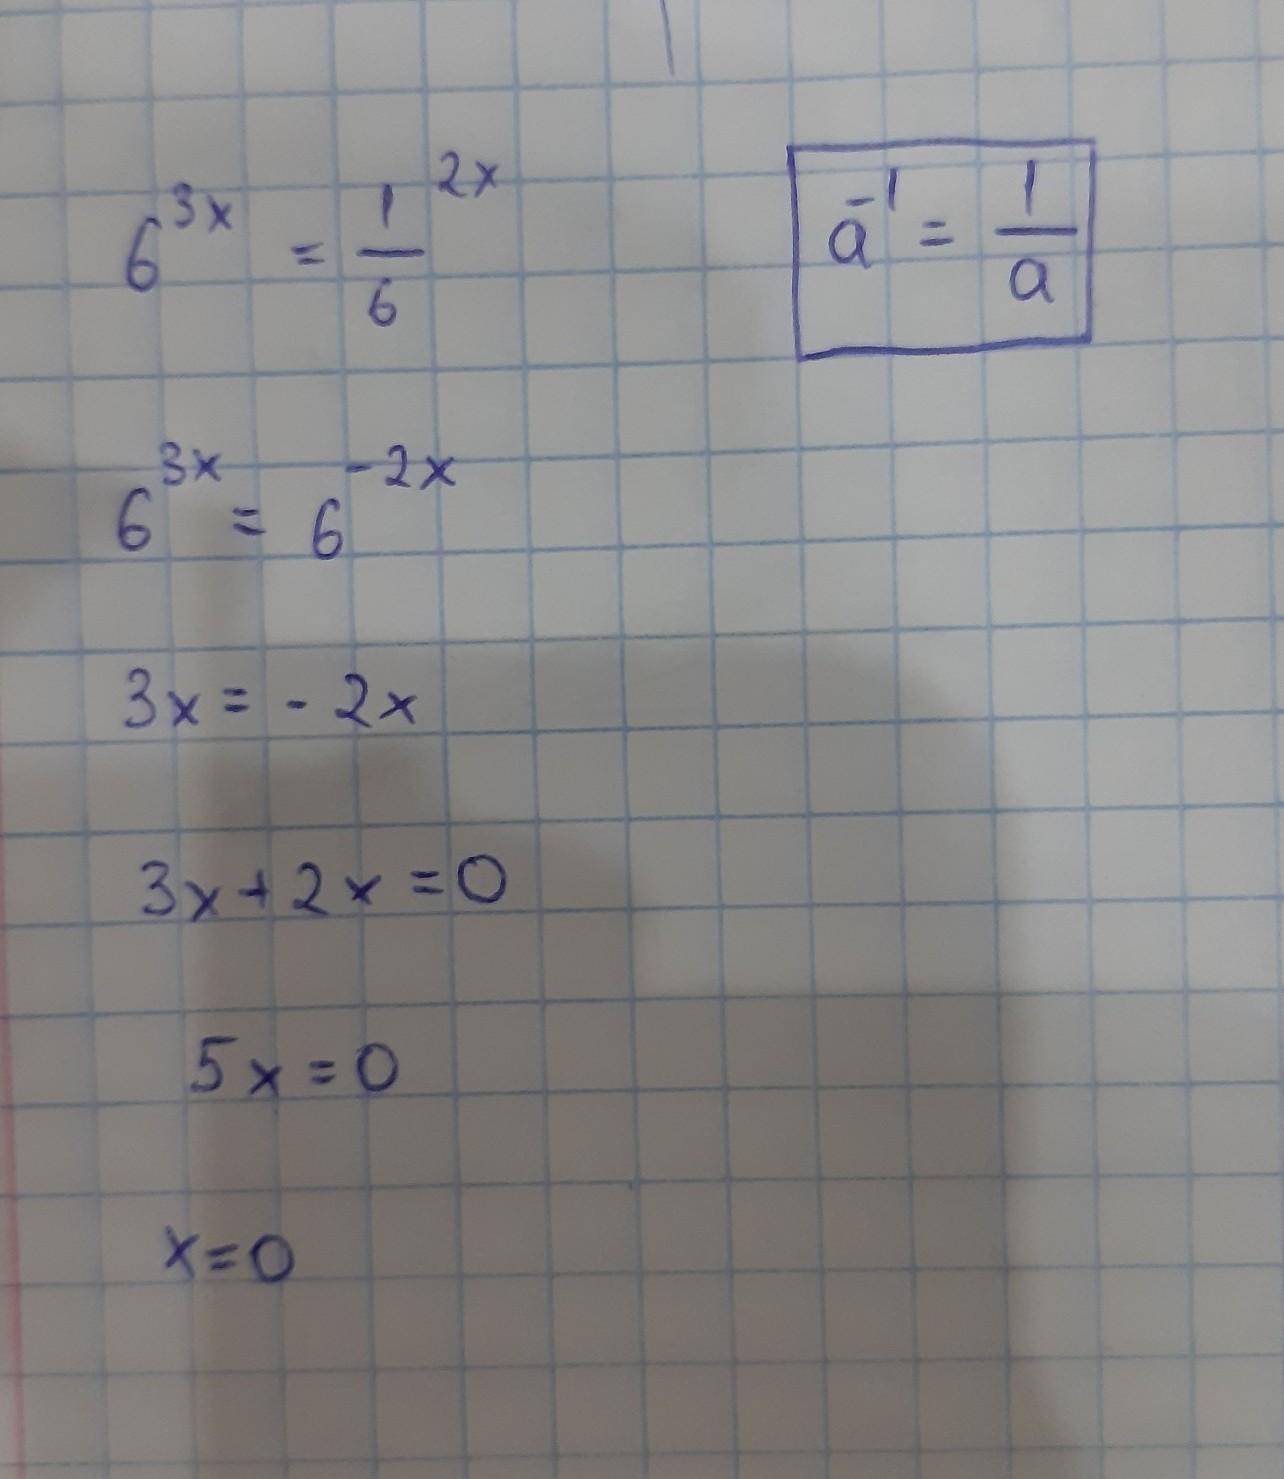 6^{3x} = \frac{1}{6}^{2x}
a^{-1} = \frac{1}{a}
6^{3x} = 6^{-2x}
3x = - 2x
3x + 2x = 0
5x = 0
x = 0